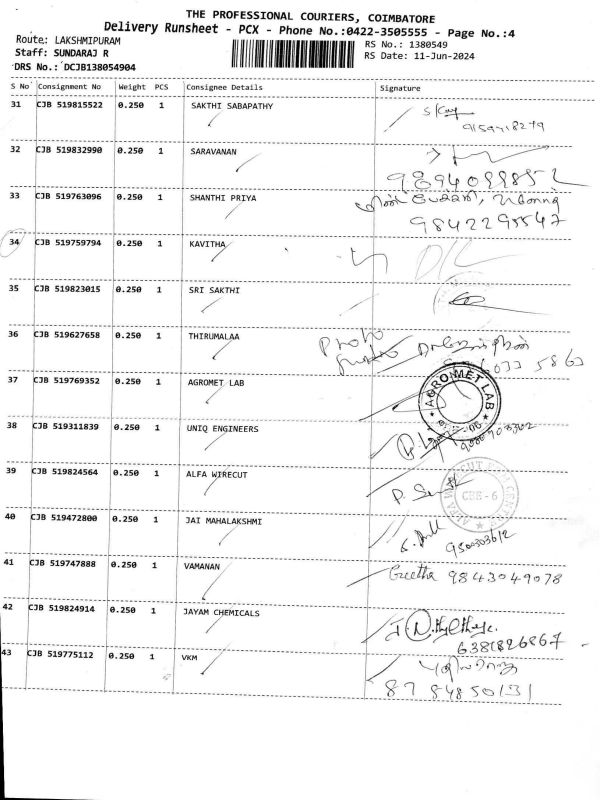 THE PROFESSIONAL COURIERS, COIMBATORE
Delivery Runsheet - PCX - Phone No.:0422-3505555 - Page No.:4
Route: LAKSHMIPURAM
RS No.: 1380549
Staff: SUNDARAJ R
RS Date: 11-Jun-2024
DRS No.: DCJB138054904
S No Consignment No Weight PCS Consignee Details Signature
31 CJB 519815522 0.250 1 SAKTHI SABAPATHY
32 CJB 519832990 0.250 1 SARAVANAN
33 CJB 519763096 0.250 1 SHANTHI PRIYA
9842295547
34 CJB 519759794 0.250 1 KAVITHA
35 CJB 519823015 0.250 1 SRI SAKTHI
36 CJB 519627658 0.250 1 THIRUMALAA
37 CJB 519769352 0.250 1 AGROMET LAB
AGROMET LAB
38 CJB 519311839 0.250 1 UNIQ ENGINEERS
39 CJB 519824564 0.250 1 ALFA WIRECUT
CBE - 6
40 CJB 519472800 0.250 1 JAI MAHALAKSHMI
41 CJB 519747888 0.250 1 VAMANAN Geetha 9843049078
42 CJB 519824914 0.250 1 JAYAM CHEMICALS
6381826867
43 CJB 519775112 0.250 1 VKM
8784850131